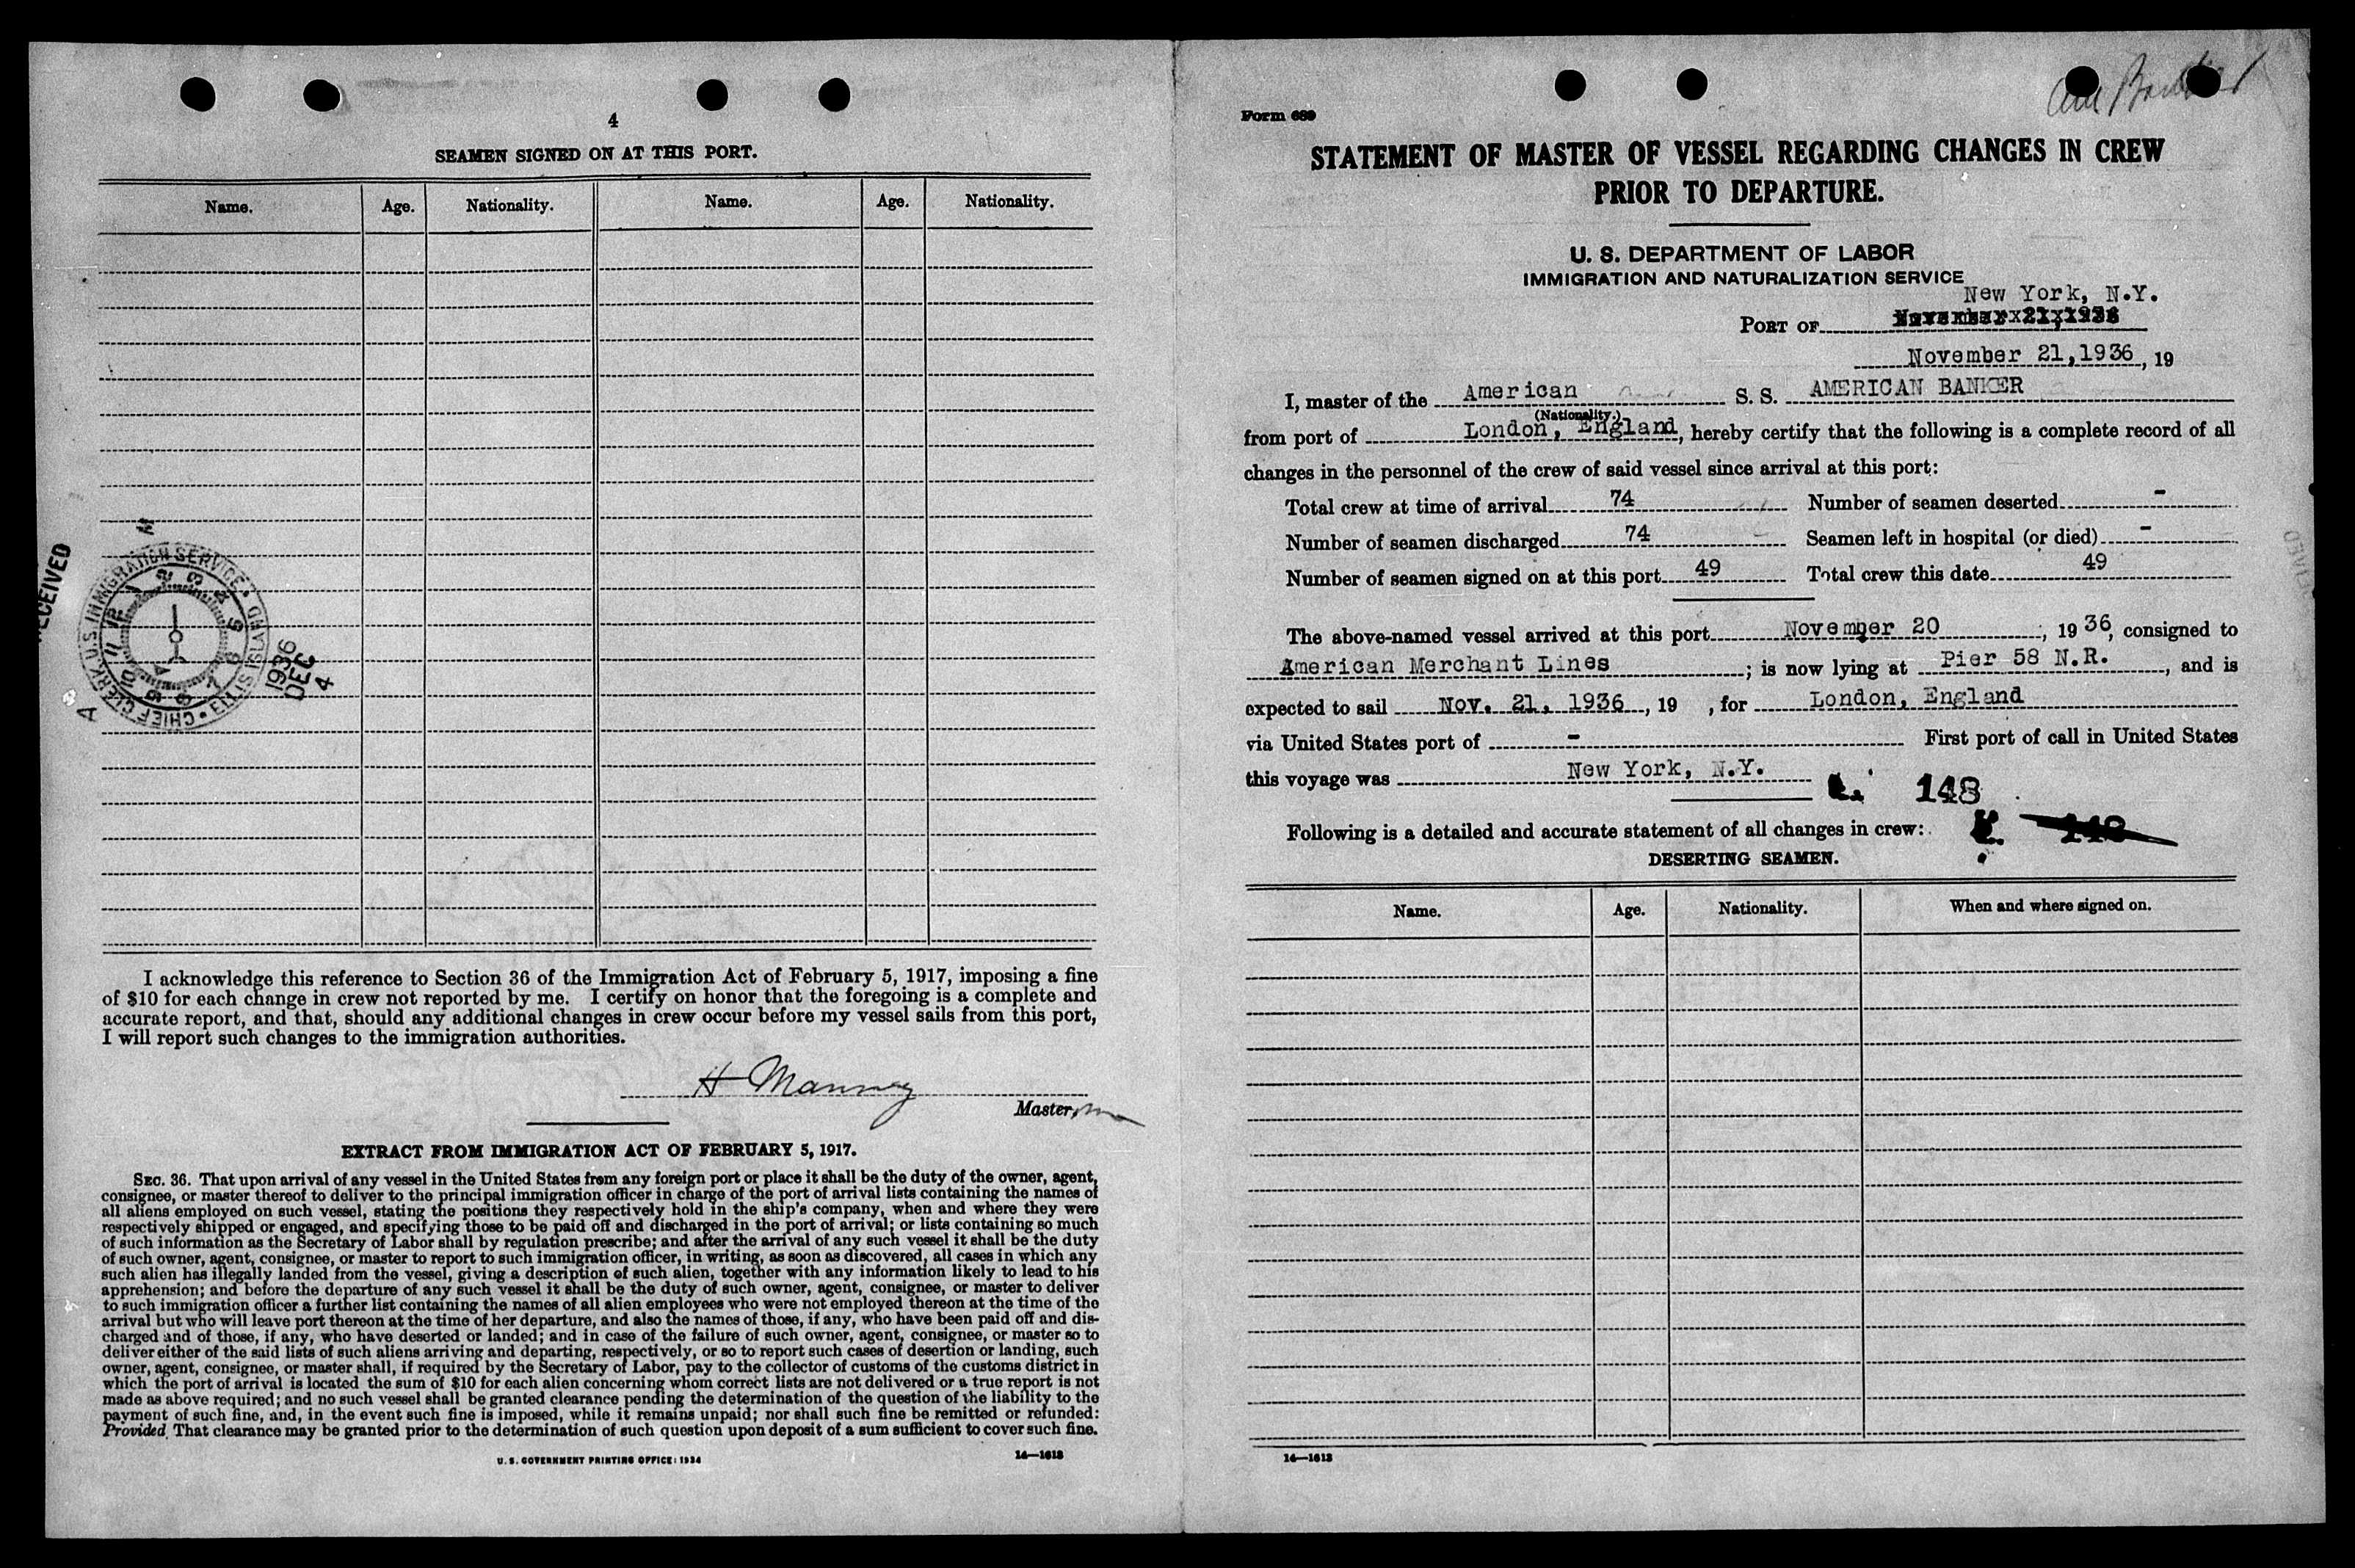 4
SEAMEN SIGNED ON AT THIS PORT.
Name. Age. Nationality. Name. Age. Nationality.
RECEIVED
CHIEF CLERK, U.S. IMMIGRATION SERVICE • ELLIS ISLAND •
1936
DEC
4
I acknowledge this reference to Section 36 of the Immigration Act of February 5, 1917, imposing a fine
of $10 for each change in crew not reported by me. I certify on honor that the foregoing is a complete and
accurate report, and that, should any additional changes in crew occur before my vessel sails from this port,
I will report such changes to the immigration authorities.
H Manning
Master,
EXTRACT FROM IMMIGRATION ACT OF FEBRUARY 5, 1917.
SEC. 36. That upon arrival of any vessel in the United States from any foreign port or place it shall be the duty of the owner, agent,
consignee, or master thereof to deliver to the principal immigration officer in charge of the port of arrival lists containing the names of
all aliens employed on such vessel, stating the positions they respectively hold in the ship's company, when and where they were
respectively shipped or engaged, and specifying those to be paid off and discharged in the port of arrival; or lists containing so much
of such information as the Secretary of Labor shall by regulation prescribe; and after the arrival of any such vessel it shall be the duty
of such owner, agent, consignee, or master to report to such immigration officer, in writing, as soon as discovered, all cases in which any
such alien has illegally landed from the vessel, giving a description of such alien, together with any information likely to lead to his
apprehension; and before the departure of any such vessel it shall be the duty of such owner, agent, consignee, or master to deliver
to such immigration officer a further list containing the names of all alien employees who were not employed thereon at the time of the
arrival but who will leave port thereon at the time of her departure, and also the names of those, if any, who have been paid off and dis-
charged and of those, if any, who have deserted or landed; and in case of the failure of such owner, agent, consignee, or master so to
deliver either of the said lists of such aliens arriving and departing, respectively, or so to report such cases of desertion or landing, such
owner, agent, consignee, or master shall, if required by the Secretary of Labor, pay to the collector of customs of the customs district in
which the port of arrival is located the sum of $10 for each alien concerning whom correct lists are not delivered or a true report is not
made as above required; and no such vessel shall be granted clearance pending the determination of the question of the liability to the
payment of such fine, and, in the event such fine is imposed, while it remains unpaid; nor shall such fine be remitted or refunded:
Provided, That clearance may be granted prior to the determination of such question upon deposit of a sum sufficient to cover such fine.
U. S. GOVERNMENT PRINTING OFFICE: 1934 14—1613
Form 689
STATEMENT OF MASTER OF VESSEL REGARDING CHANGES IN CREW
PRIOR TO DEPARTURE.
U. S. DEPARTMENT OF LABOR
IMMIGRATION AND NATURALIZATION SERVICE
New York, N.Y.
PORT OF
November 21,1936, 19
I, master of the American S. S. AMERICAN BANKER
(Nationality.)
from port of London, England, hereby certify that the following is a complete record of all
changes in the personnel of the crew of said vessel since arrival at this port:
Total crew at time of arrival 74 Number of seamen deserted -
Number of seamen discharged 74 Seamen left in hospital (or died) -
Number of seamen signed on at this port 49 Total crew this date 49
The above-named vessel arrived at this port November 20, 1936, consigned to
American Merchant Lines; is now lying at Pier 58 N.R., and is
expected to sail Nov. 21, 1936, 19 , for London, England
via United States port of - First port of call in United States
this voyage was New York, N.Y.
148
Following is a detailed and accurate statement of all changes in crew: 148
DESERTING SEAMEN.
Name. Age. Nationality. When and where signed on.
14—1613